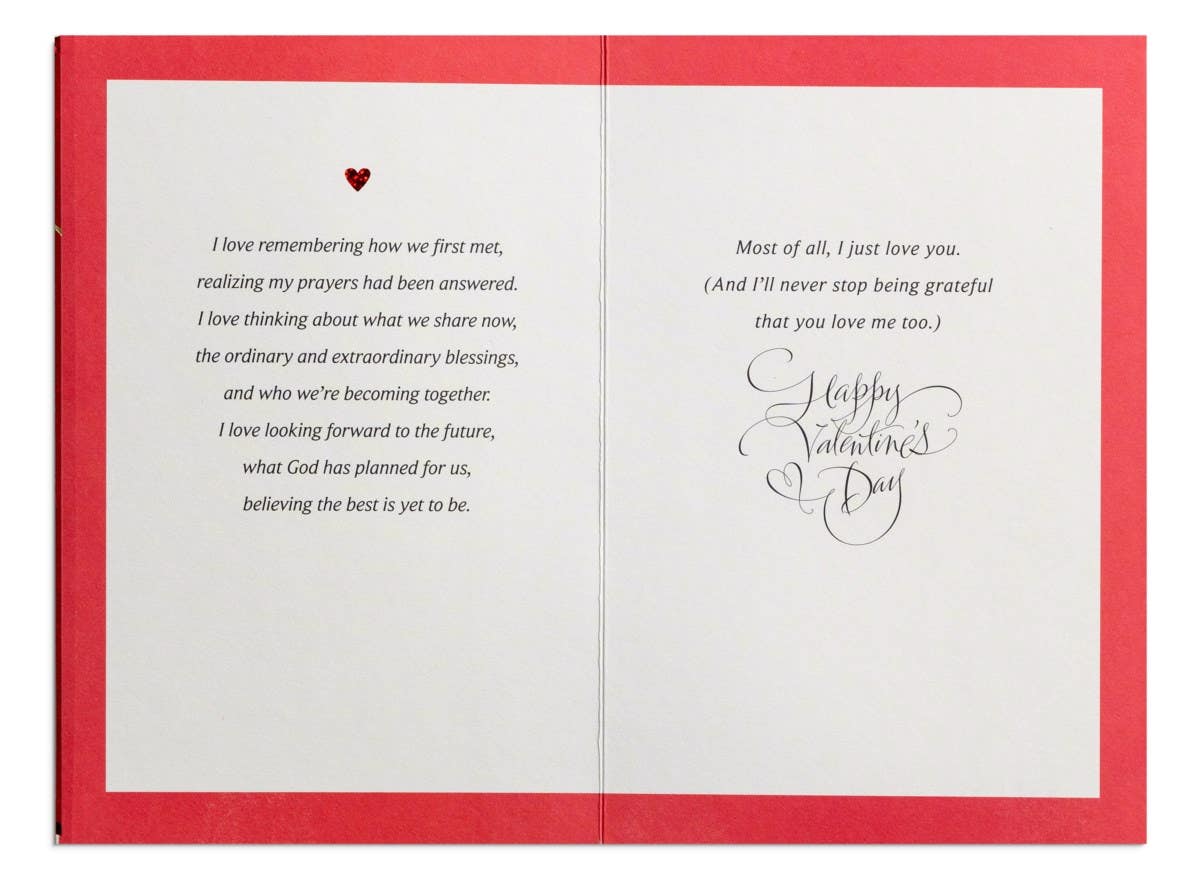 I love remembering how we first met,
realizing my prayers had been answered.
I love thinking about what we share now,
the ordinary and extraordinary blessings,
and who we're becoming together.
I love looking forward to the future,
what God has planned for us,
believing the best is yet to be.
Most of all, I just love you.
(And I'll never stop being grateful
that you love me too.)
Happy
Valentine's
Day